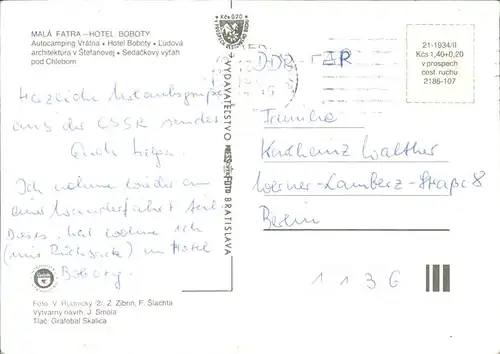 MALÁ FATRA – HOTEL BOBOTY
Autocamping Vrátna • Hotel Boboty • Ľudová
architektúra v Štefanovej • Sedačkový výťah
pod Chlebom
Herzliche Urlaubsgrüße
aus der CSSR sendet
Euch
Ich nehme wieder an
einer Wanderfahrt teil.
Dieses Mal wohne ich
(mit Rucksack) im Hotel
Boboty.
Foto: V. Rudnický /2/, Z. Zibrin, F. Šlachta
Výtvarný návrh: J. Smola
Tlač: Grafobal Skalica
Kčs 0,20
VYDAVATEĽSTVO PRESSFOTO BRATISLAVA
21-1934/II
Kčs 1,40+0,20
v prospech
cest. ruchu
2186-107
DDR-
Familie
Karlheinz Walther
Werner-Lamberz-Straße 8
Berlin
1136